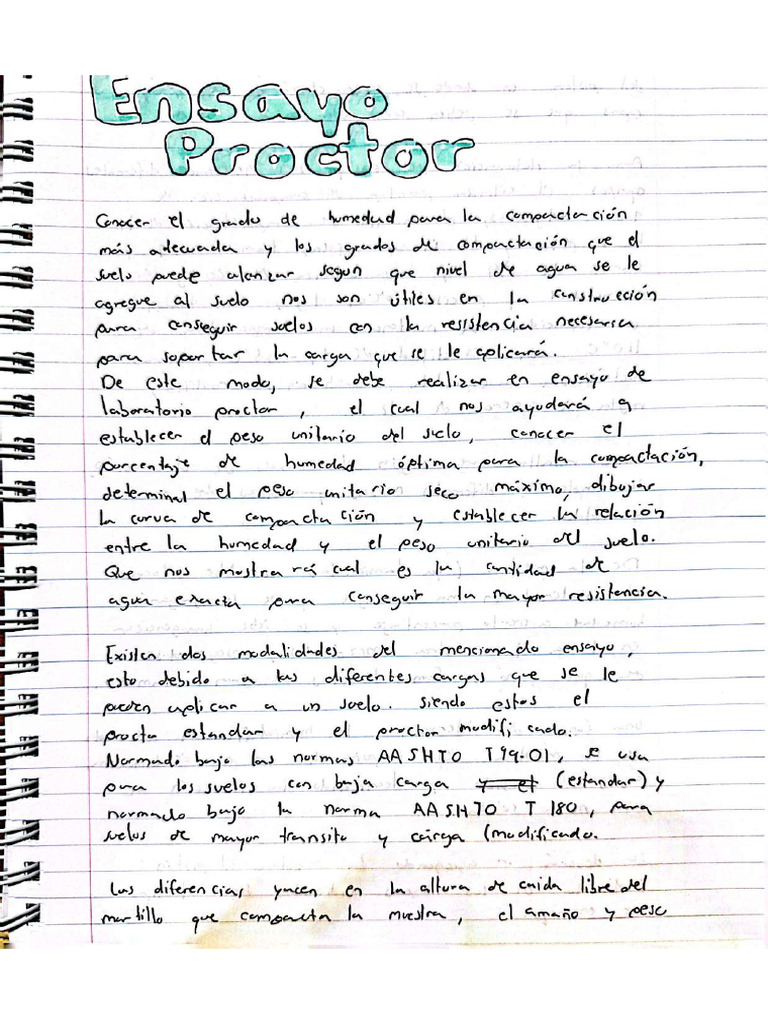 Ensayo
Proctor
Conocer el grado de humedad para la compactación
más adecuada y los grados de compactación que el
suelo puede alcanzar segun que nivel de agua se le
agregue al suelo nos son útiles en la construcción
para conseguir suelos con la resistencia necesaria
para soportar la carga que se le aplicará.
De este modo, se debe realizar en ensayo de
laboratorio proctor, el cual nos ayudará a
establecer el peso unitario del suelo, conocer el
porcentaje de humedad óptima para la compactación,
determinal el peso unitario seco máximo, dibujar
la curva de compactación y establecer la relación
entre la humedad y el peso unitario del suelo.
Que nos mostrará cual es la cantidad de
agua exacta para conseguir la mayor resistencia.
Existen dos modalidades del mencionado ensayo,
esto debido a las diferentes cargas que se le
pueden aplicar a un suelo. siendo estos el
procta estandar y el proctor modificado.
Normado bajo las normas AASHTO T99-01, se usa
para los suelos con baja carga y el (estandar) y
normado bajo la norma AASHTO T 180, para
suelos de mayor transito y carga (modificado.
Las diferencias yacen en la altura de caida libre del
martillo que compacta la muestra, el amaño y peso